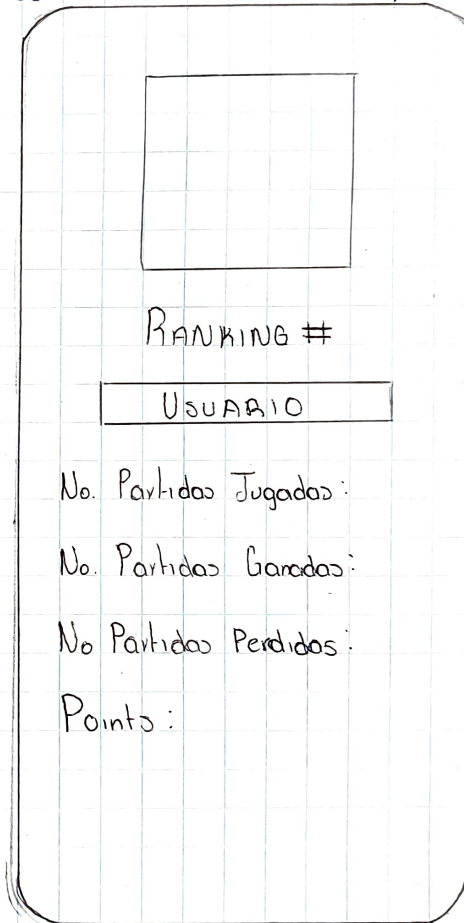 RANKING #
USUARIO
No. Partidas Jugadas:
No. Partidas Ganadas:
No Partidas Perdidas:
Points: